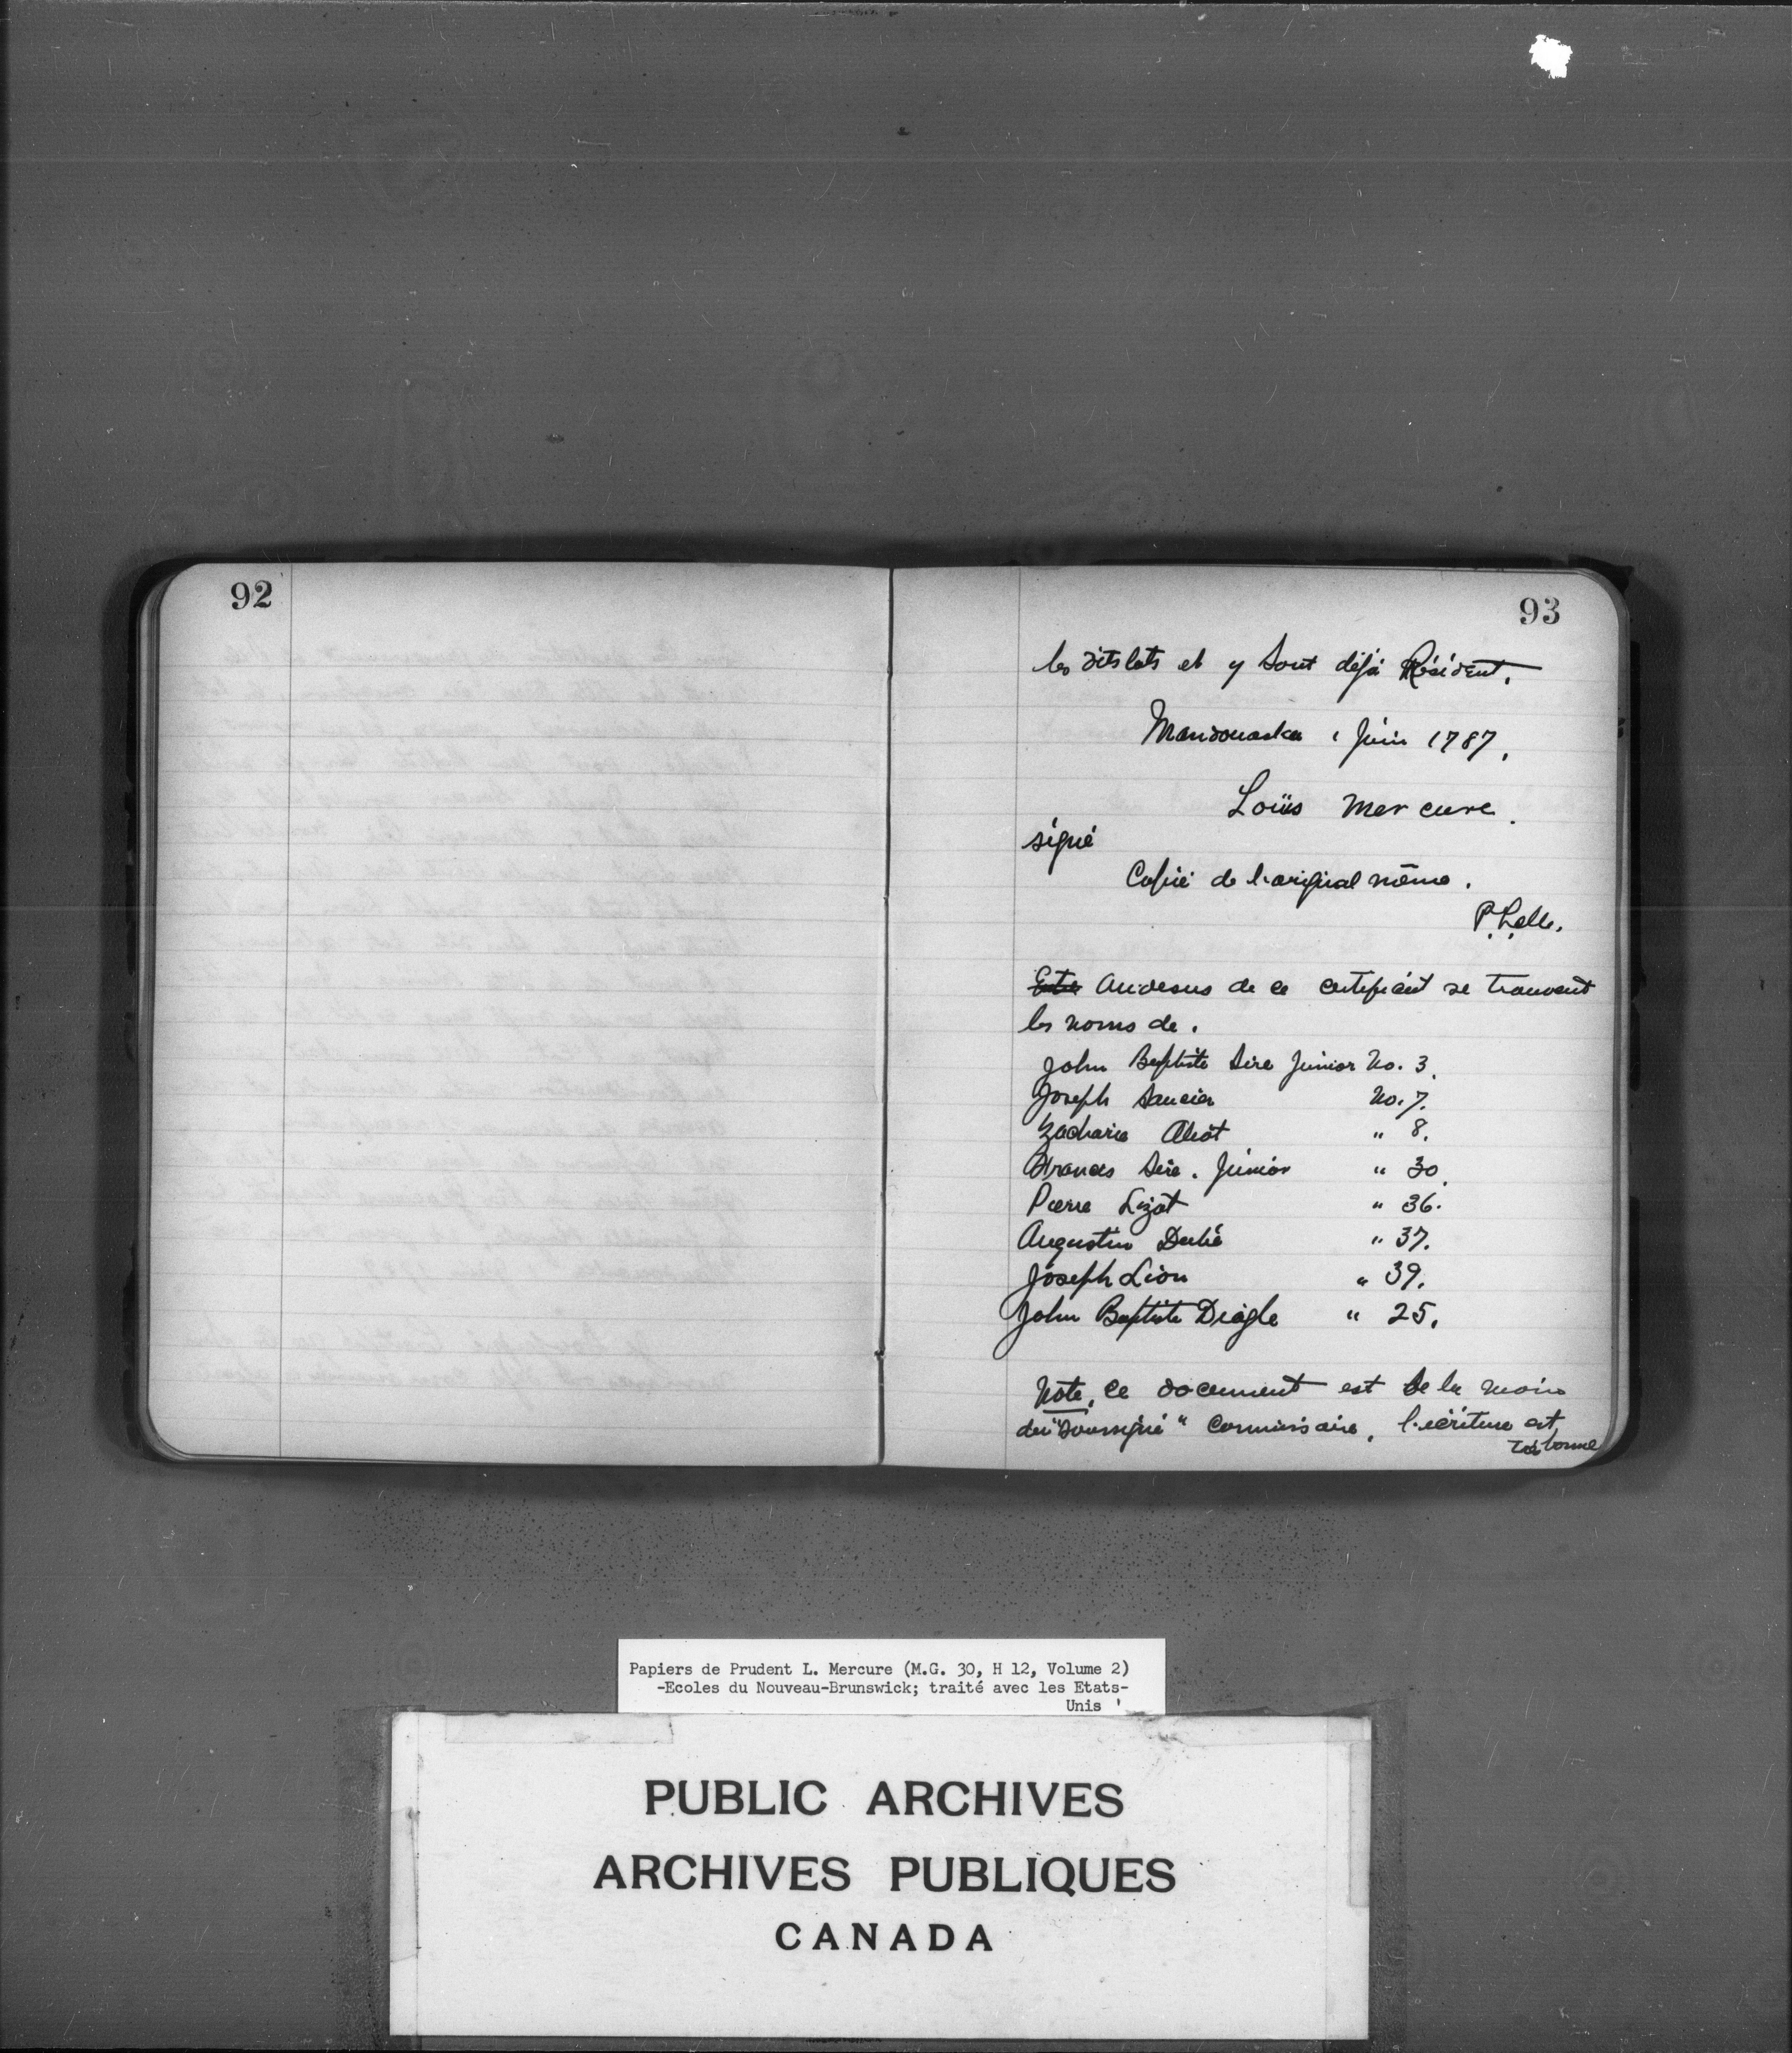 92
93
les dits lots et y sont déjà Résident.
Mandouaska 1 Juin 1787.
Loüis Mercure.
signé
Copié de l'original même.
Au desus de ce certificat se trouvent
les noms de.
John Baptiste Sire Junior No. 3.
Joseph Saucier No. 7.
Zacharie Aliot " 8.
Francis Sire. Junior " 30.
Pierre Lizot " 36.
Augustin Dubé " 37.
Joseph Lion " 39.
John Baptiste Diagle " 25.
Note, ce document est de la main
du "soussigné" Commissaire, l'écriture est
très bonne
Papiers de Prudent L. Mercure (M.G. 30, H 12, Volume 2)
-Ecoles du Nouveau-Brunswick; traité avec les Etats-
Unis '
PUBLIC ARCHIVES
ARCHIVES PUBLIQUES
CANADA